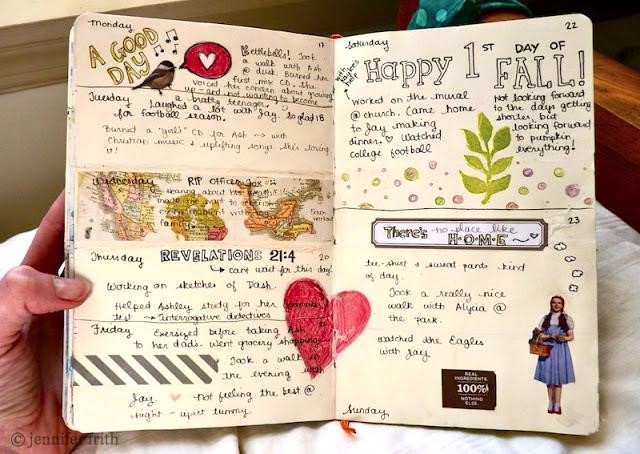 Monday
17
A GOOD DAY
Kettlebells! Took
a walk with Ash
@ dusk. Burned her
first mix CD. She
voiced her concern about growing
up - and not wanting to become
a bratty teenager.
Tuesday
18
Laughed a lot with Jay. So glad
for football season.
Burned a "girls" CD for Ash --> with
Christian music & uplifting songs. She's loving
it!
Wednesday
RIP Officer Fox
hearing about his death
made me want to cherish
every moment with my
family.
Thursday
20
REVELATIONS 21:4
can't wait for this day!
Working on sketches of Dash.
Helped Ashley study for her
test → Interrogative detectives
Friday
Exersized before taking Ash
to her dads. Went grocery shopping.
Took a walk in
the evening with
Jay. not feeling the best @
night - upset tummy.
Saturday
22
Happy 1ST DAY OF
FALL!
Worked on the mural
@ church. Came home
to Jay making
dinner. Watched
college football
Not looking forward
to the days getting
shorter, but
looking forward
to pumpkin
everything!
23
There's no place like
H·O·M·E
tee-shirt & sweat pants kind
of day.
Took a really nice
walk with Alycia @
the park.
Watched the Eagles
with Jay
REAL
INGREDIENTS.
100%
NOTHING
ELSE.
Sunday
© jennifer frith